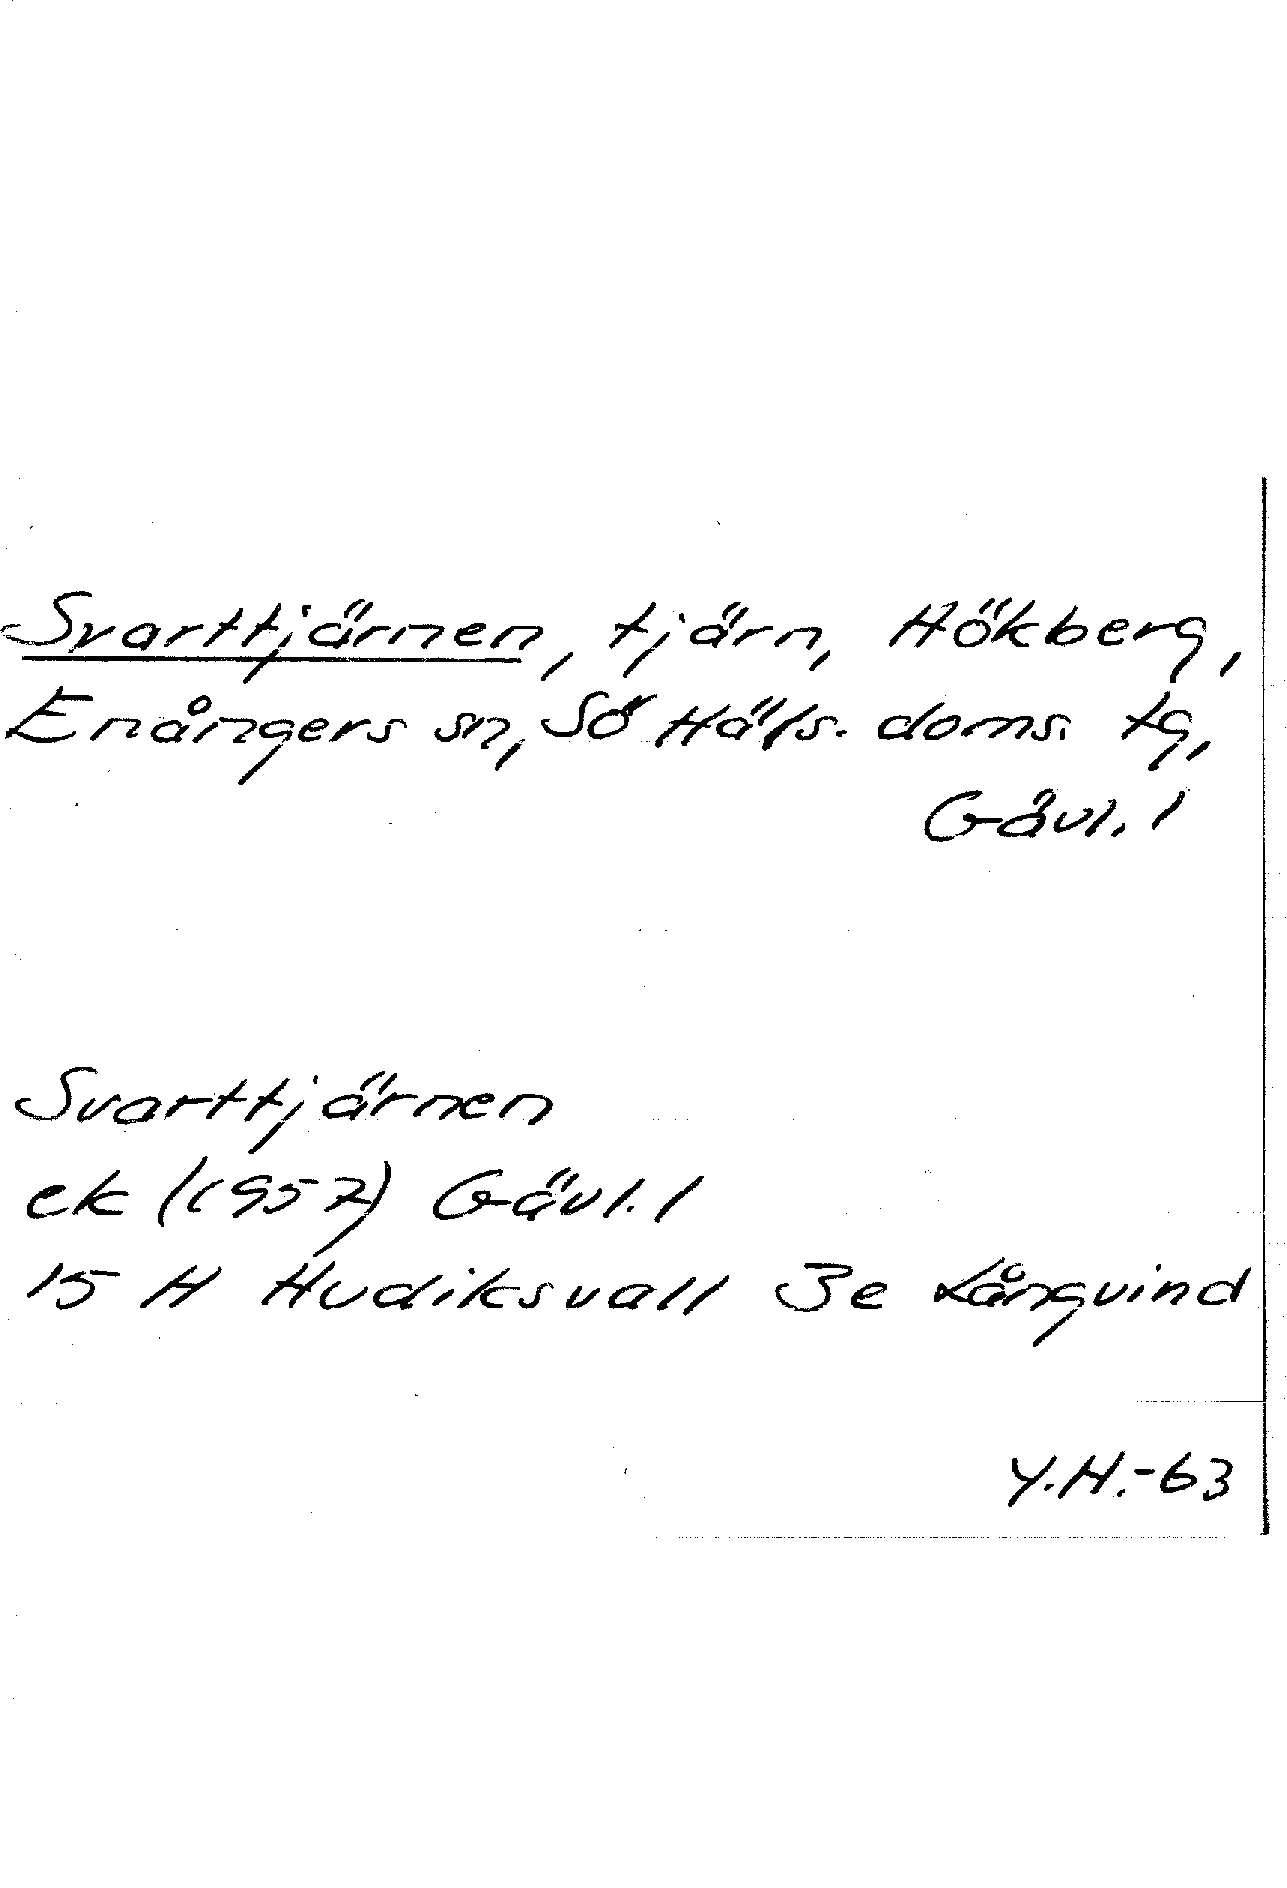 Svarttjärnen, tjärn, Hökberg,
Enångers sn, Sö Häls. doms. tg,
Gävl. l
Svarttjärnen
ek (1957) Gävl. l
15 H Hudiksvall 3e Långvind
Y.H.-63